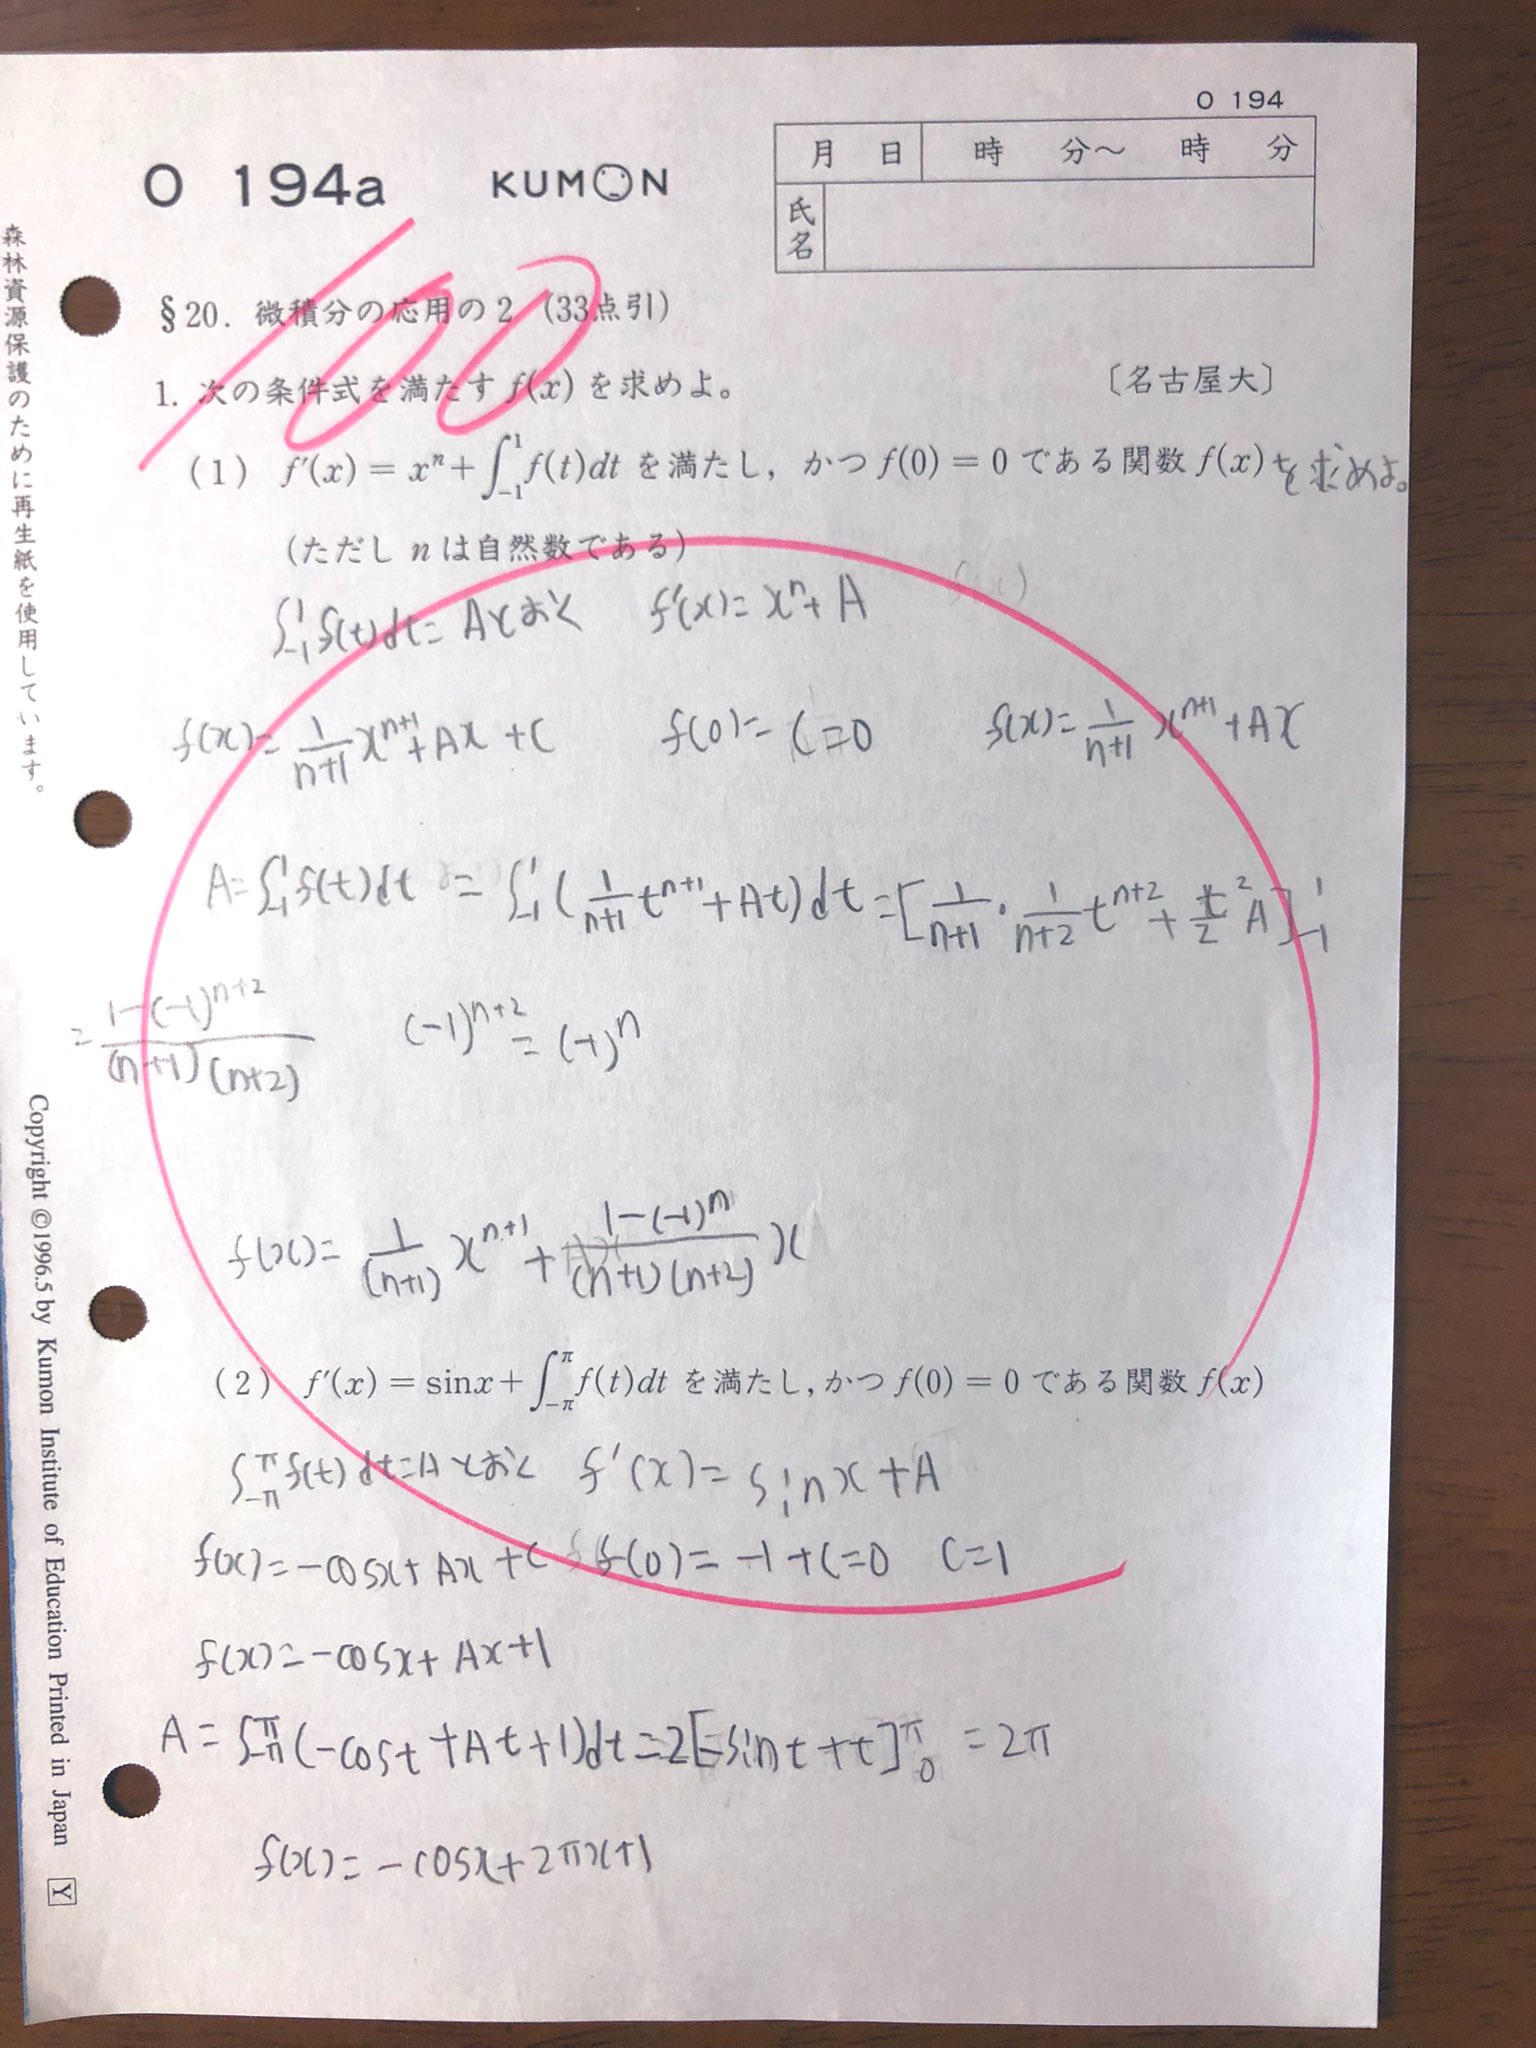 O 194
O 194a KUMON
月 日 時 分～ 時 分
氏名
100
§20. 微積分の応用の2 (33点引)
1. 次の条件式を満たす f(x) を求めよ。 〔名古屋大〕
(1) f′(x) = xⁿ + ∫₋₁¹ f(t)dt を満たし，かつ f(0) = 0 である関数 f(x) を求めよ。
(ただし n は自然数である)
∫₋₁¹ f(t)dt = A とおく f′(x) = xⁿ + A
f(x) = 1/(n+1) xⁿ⁺¹ + Ax + C f(0) = C = 0 f(x) = 1/(n+1) xⁿ⁺¹ + Ax
A = ∫₋₁¹ f(t)dt = ∫₋₁¹ (1/(n+1) tⁿ⁺¹ + At)dt = [1/(n+1)・1/(n+2) tⁿ⁺² + t²/2 A]₋₁¹
= (1-(-1)ⁿ⁺²)/((n+1)(n+2)) (-1)ⁿ⁺² = (-1)ⁿ
f(x) = 1/(n+1) xⁿ⁺¹ + (1-(-1)ⁿ)/((n+1)(n+2)) x
(2) f′(x) = sinx + ∫₋π^π f(t)dt を満たし，かつ f(0) = 0 である関数 f(x)
∫₋π^π f(t)dt = A とおく f′(x) = sinx + A
f(x) = -cosx + Ax + C f(0) = -1 + C = 0 C = 1
f(x) = -cosx + Ax + 1
A = ∫₋π^π (-cost + At + 1)dt = 2[-sint + t]₀^π = 2π
f(x) = -cosx + 2πx + 1
森林資源保護のために再生紙を使用しています。
Copyright ©1996.5 by Kumon Institute of Education Printed in Japan Y